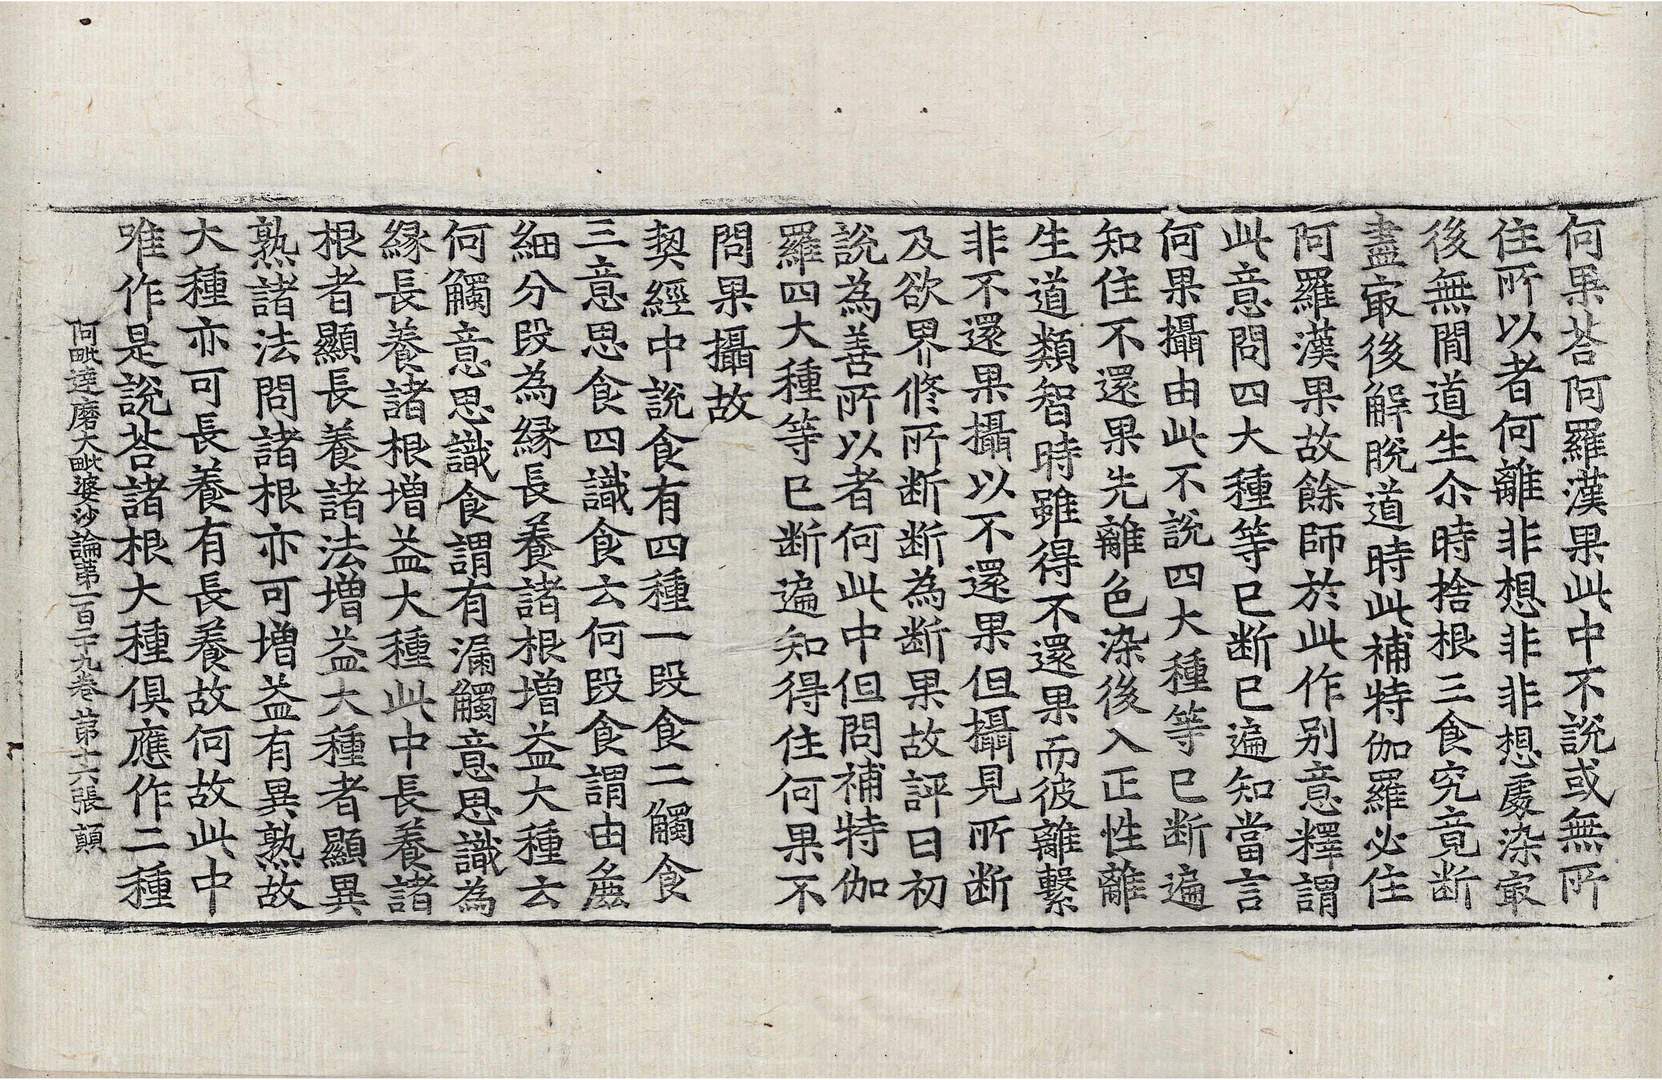 何果荅阿羅漢果此中不說或無所
住所以者何離非想非非想處染㝡
後無間道生尒時捨根三食究竟断
盡㝡後解脫道時此補特伽羅必住
阿羅漢果故餘師於此作别意釋謂
此意問四大種等已断已遍知當言
何果攝由此不說四大種等已断遍
知住不還果先離色染後入正性離
生道類智時雖得不還果而彼離繫
非不還果攝以不還果但攝見所断
及欲界修所断断為断果故評曰初
說為善所以者何此中但問補特伽
羅四大種等已断遍知得住何果不
問果攝故
契經中說食有四種一段食二觸食
三意思食四識食云何段食謂由麁
細分段為縁長養諸根增益大種云
何觸意思識食謂有漏觸意思識為
縁長養諸根增益大種此中長養諸
根者顯長養諸法增益大種者顯異
熟諸法問諸根亦可增益有異熟故
大種亦可長養有長養故何故此中
唯作是說荅諸根大種俱應作二種
阿毗達磨大毗婆沙論第一百二十九卷 第十六張 顛